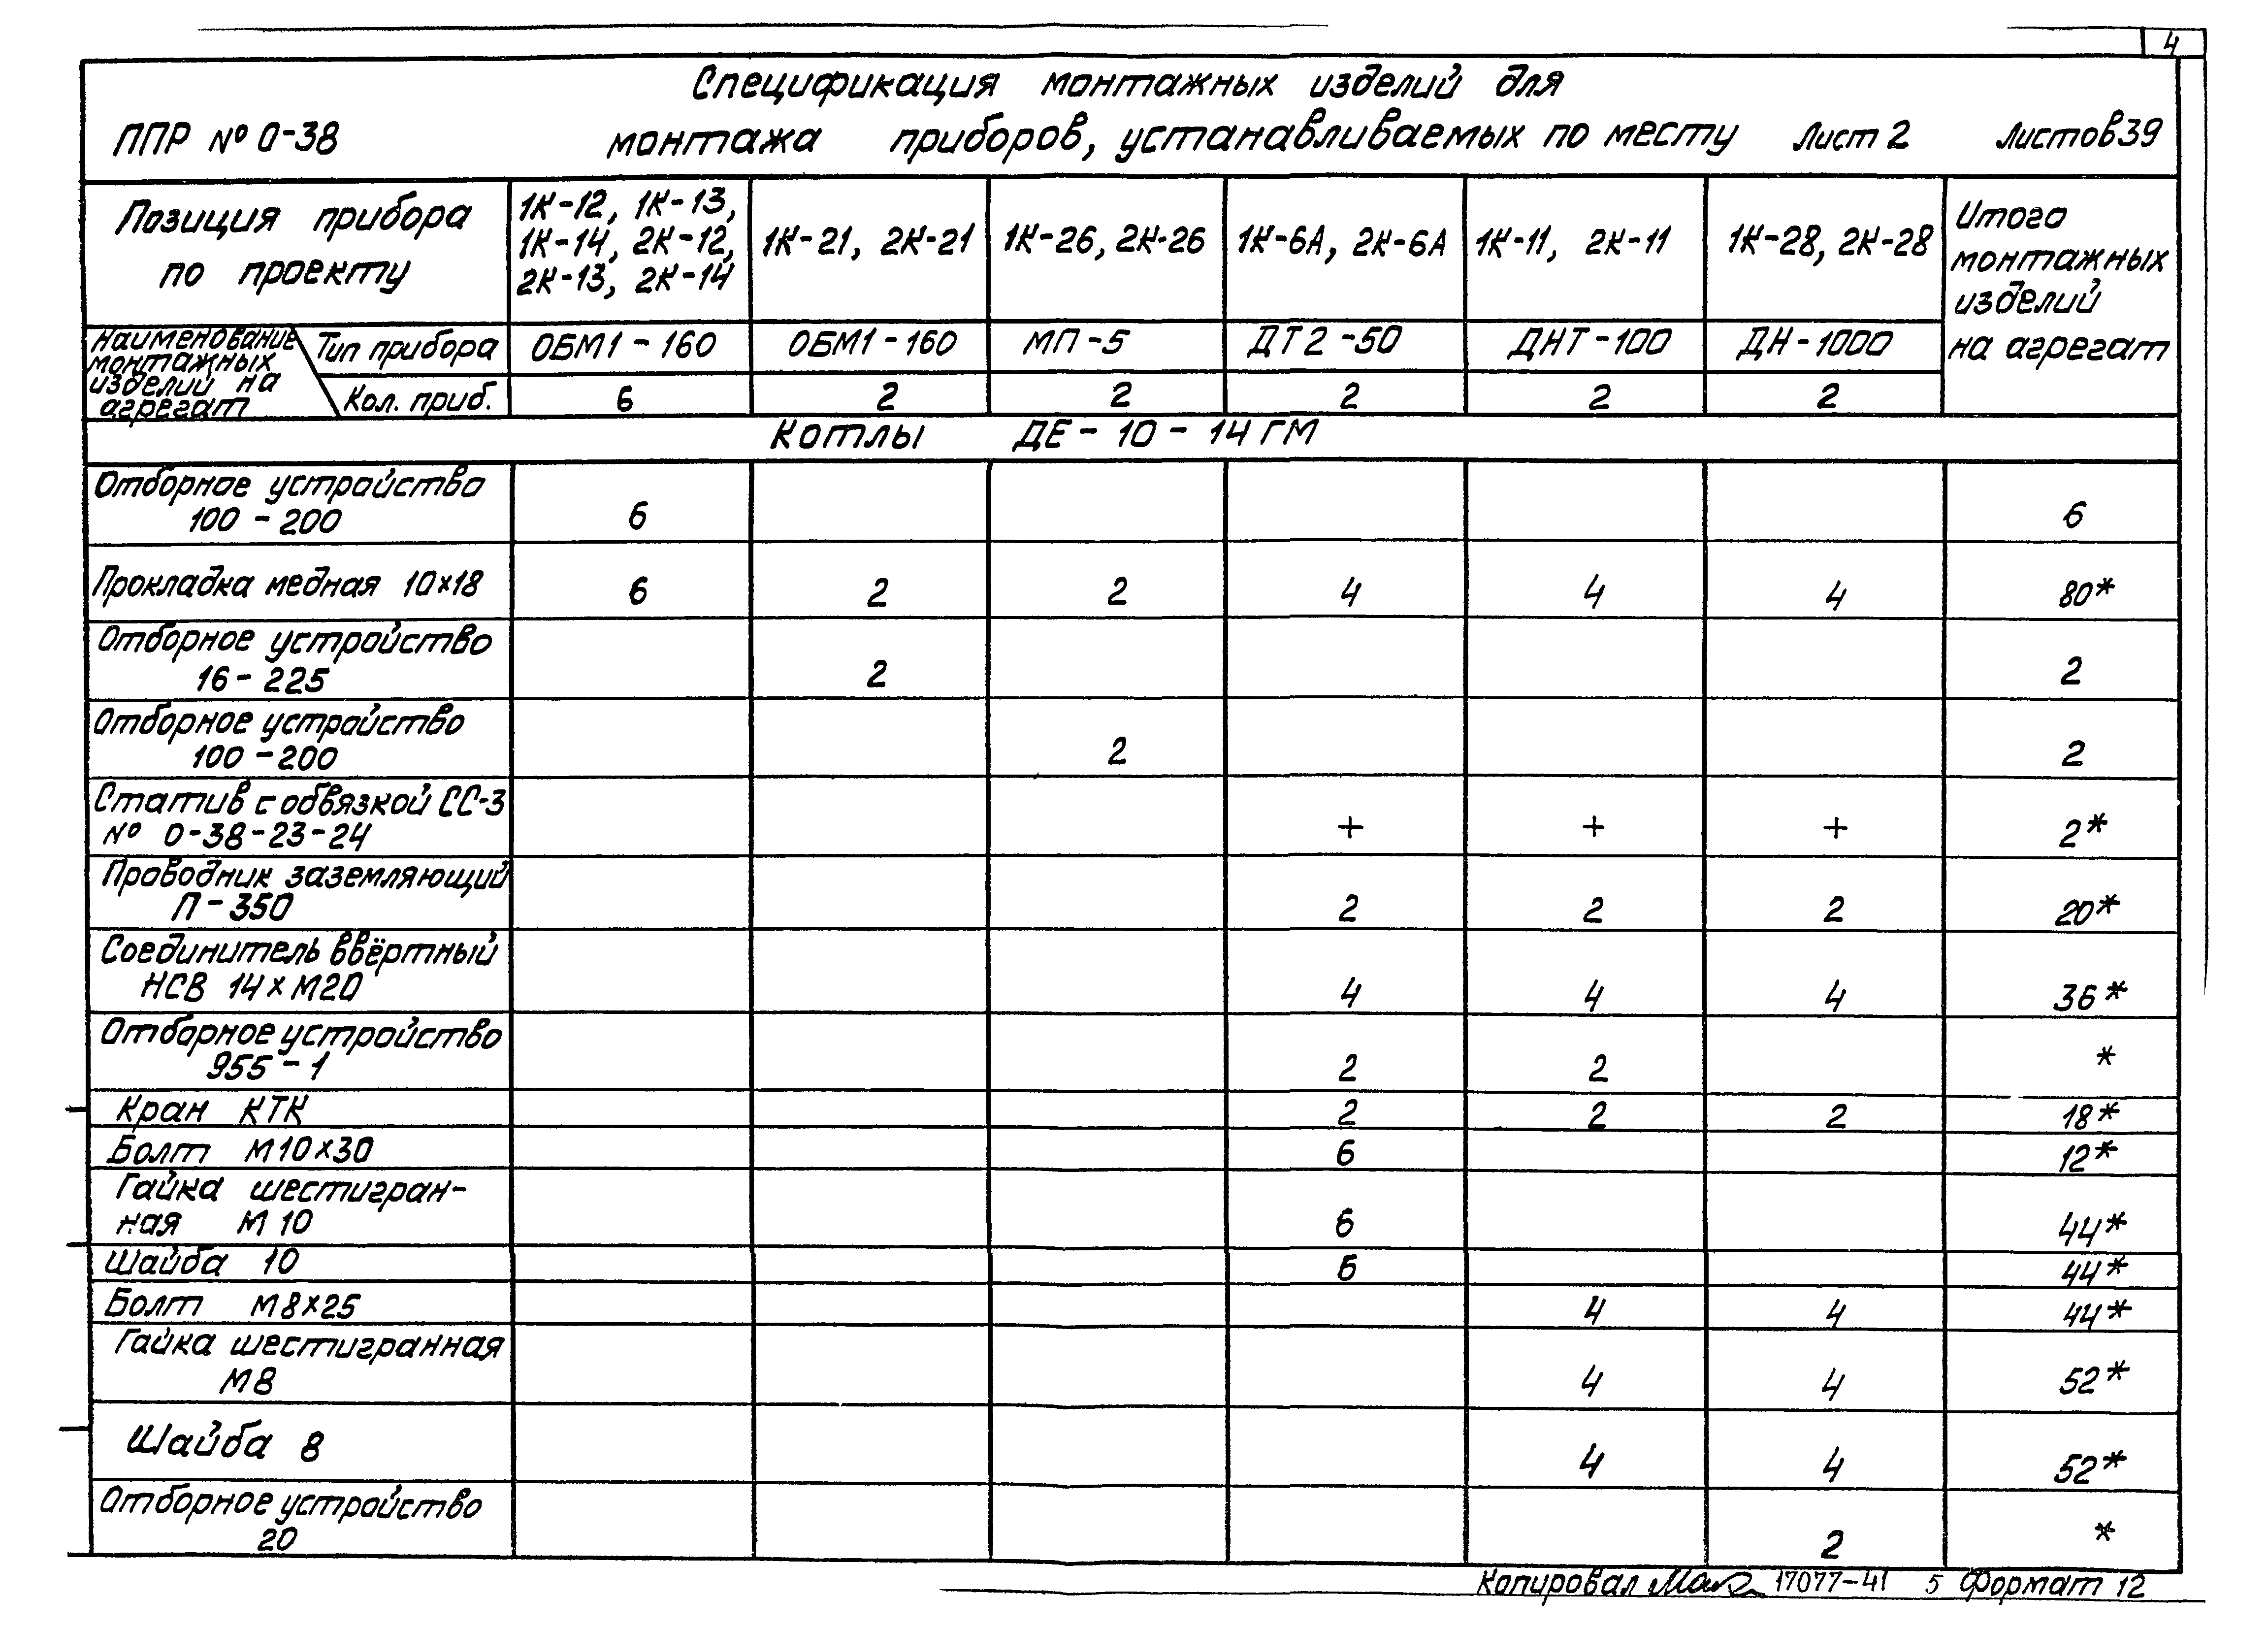 4
Спецификация монтажных изделий для
ППР № 0-38 монтажа приборов, устанавливаемых по месту Лист 2 Листов 39
Позиция прибора
по проекту
1К-12, 1К-13,
1К-14, 2К-12,
2К-13, 2К-14
1К-21, 2К-21
1К-26, 2К-26
1К-6А, 2К-6А
1К-11, 2К-11
1К-28, 2К-28
Итого
монтажных
изделий
на агрегат
Наименование
монтажных
изделий на
агрегат
Тип прибора ОБМ1-160 ОБМ1-160 МП-5 ДТ2-50 ДНТ-100 ДН-1000
Кол. приб. 6 2 2 2 2 2
Котлы ДЕ-10-14ГМ
Отборное устройство
100-200 6 6
Прокладка медная 10х18 6 2 2 4 4 4 80*
Отборное устройство
16-225 2 2
Отборное устройство
100-200 2 2
Статив с обвязкой СС-3
№ 0-38-23-24 + + + 2*
Проводник заземляющий
П-350 2 2 2 20*
Соединитель ввёртный
НСВ 14хМ20 4 4 4 36*
Отборное устройство
955-1 2 2 *
Кран КТК 2 2 2 18*
Болт М10х30 6 12*
Гайка шестигран-
ная М10 6 44*
Шайба 10 6 44*
Болт М8х25 4 4 44*
Гайка шестигранная
М8 4 4 52*
Шайба 8 4 4 52*
Отборное устройство
20 2 *
Копировал 17077-41 5 Формат 12